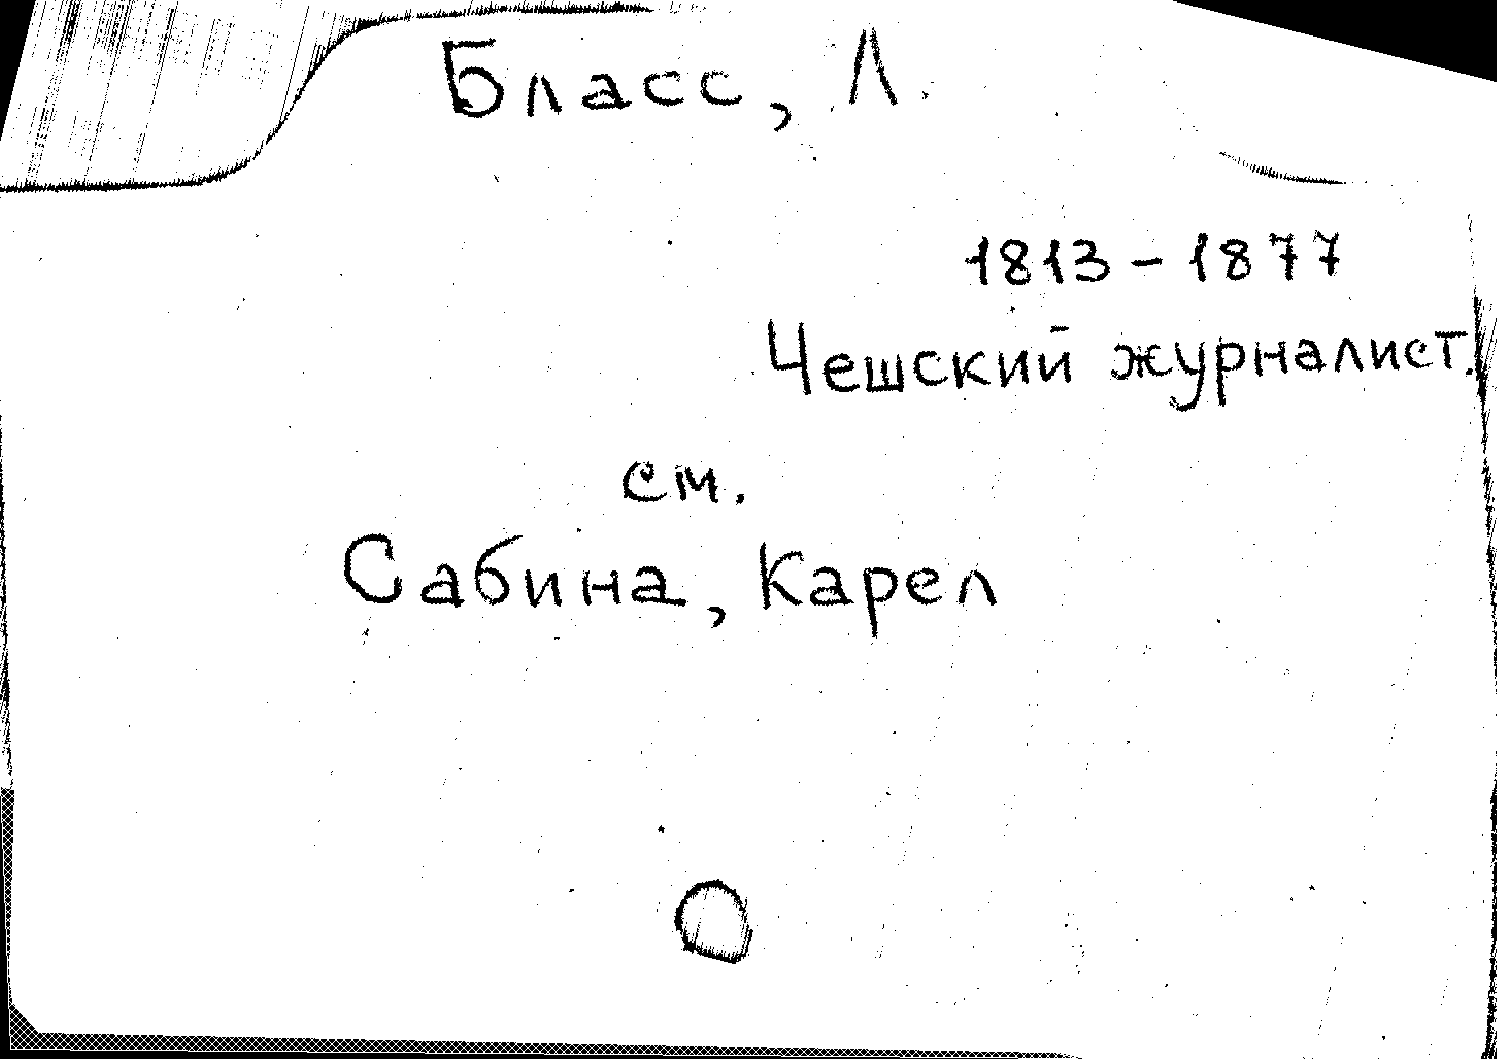 Бласс, Л.
1813 – 1877
Чешский журналист.
см.
Сабина, Карел